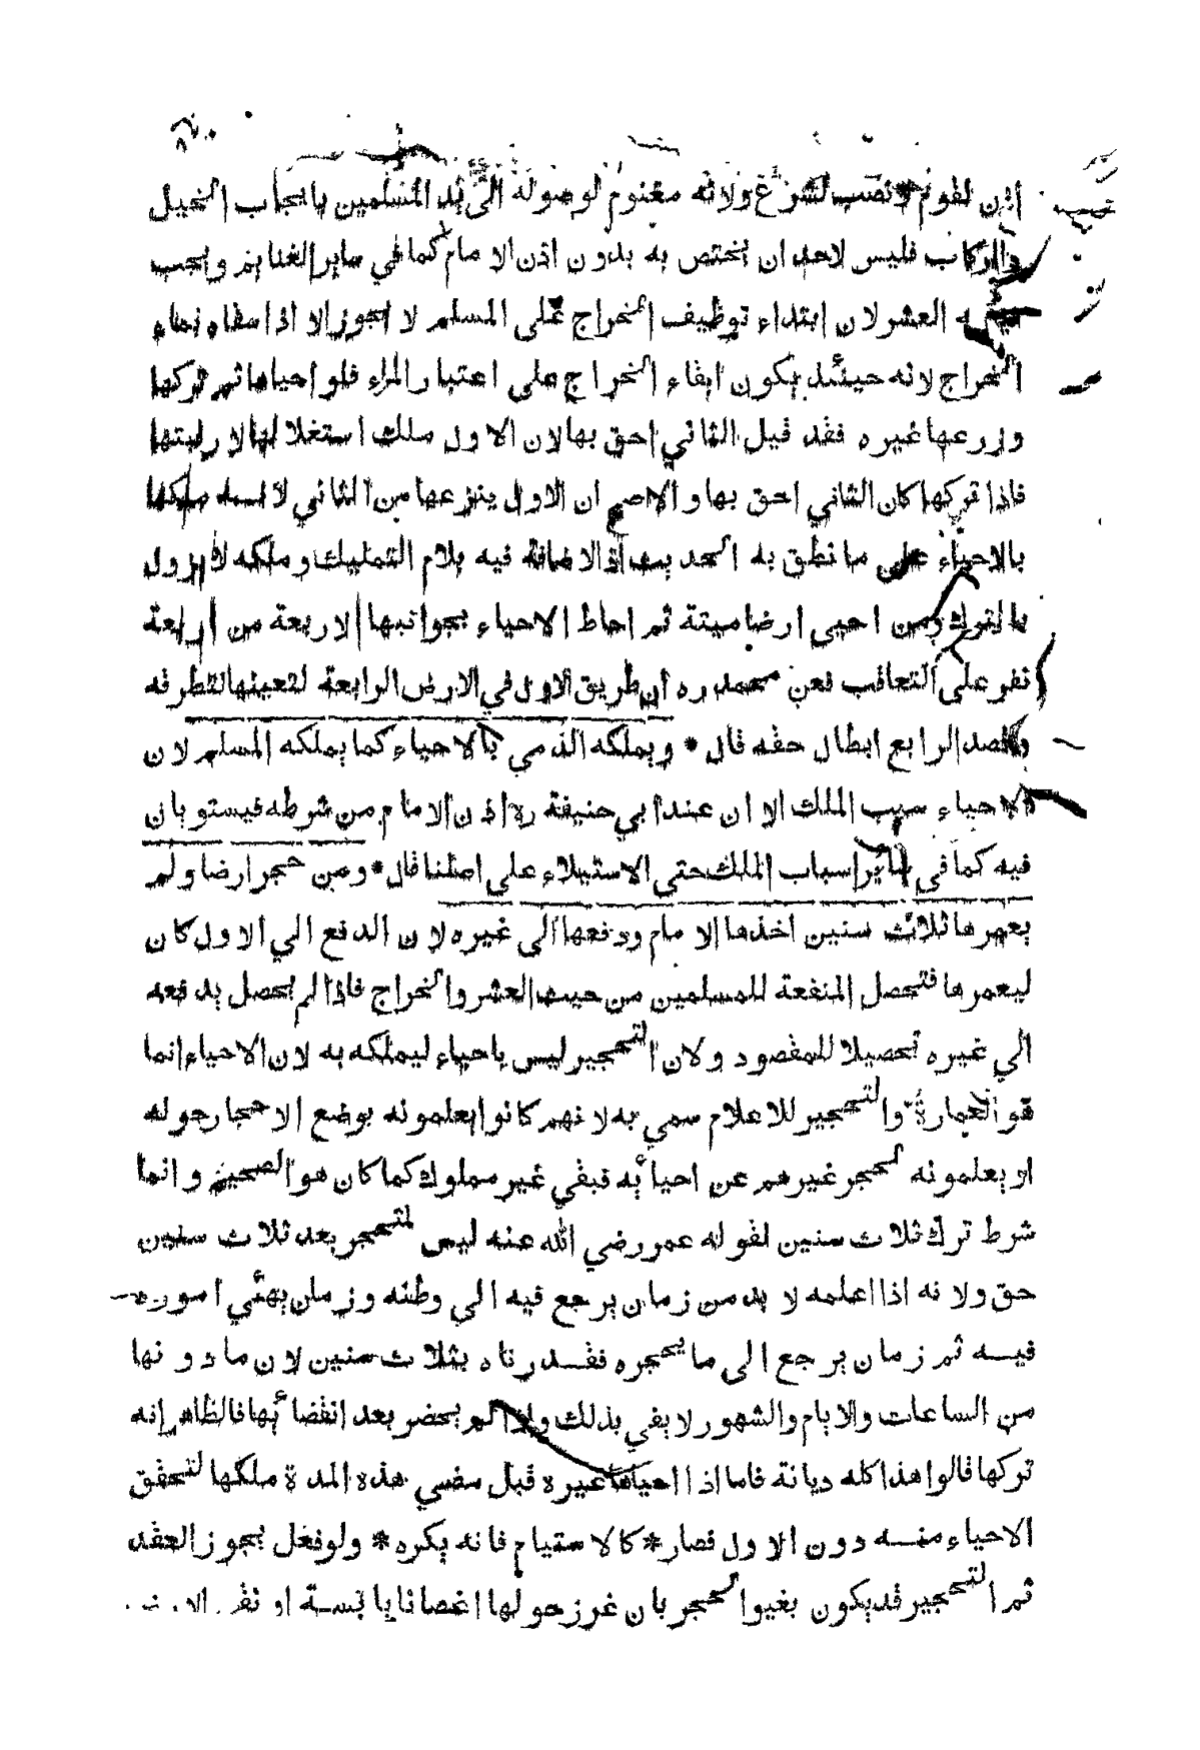 اذن لقوم * نصب لشرع ولانه مغنوم لوصوله الى يد المسلمين بايجاب الخيل
والركاب فليس لاحد ان يختص به بدون اذن الامام كما في ساير الغنايم ويجب
فيه العشر لان ابتداء توظيف الخراج على المسلم لا يجوز الا اذا سقاه بماء
الخراج لانه حينئذ يكون ابقاء الخراج على اعتبار الماء فلو احياها ثم تركها
وزرعها غيره فقد قيل الثاني احق بها لان الاول ملك استغلالها لا رقبتها
فاذا تركها كان الثاني احق بها والاصح ان الاول ينزعها من الثاني لانه ملكها
بالاحياء على ما نطق به الحديث اذ الاضافة فيه بلام التمليك وملكه لا يزول
بالترك ومن احيى ارضا ميتة ثم احاط الاحياء بجوانبها الاربعة من اربعة
نفر على التعاقب فعن محمد ره ان طريق الاول في الارض الرابعة لتعينها لتطرقه
وقصد الرابع ابطال حقه قال * ويملكه الذمي بالاحياء كما يملكه المسلم لان
الاحياء سبب الملك الا ان عند ابي حنيفة ره اذن الامام من شرطه فيستويان
فيه كما في سائر اسباب الملك حتى الاستيلاء على اصلنا قال * ومن حجر ارضا ولم
يعمرها ثلاث سنين اخذها الامام ودفعها الى غيره لان الدفع الي الاول كان
ليعمرها فتحصل المنفعة للمسلمين من حيث العشر والخراج فاذا لم يحصل يدفعه
الي غيره تحصيلا للمقصود ولان التحجير ليس باحياء ليملكه به لان الاحياء انما
هو العمارة والتحجير للاعلام سمي به لانهم كانوا يعلمونه بوضع الاحجار حوله
او يعلمونه لحجر غيرهم عن احيائه فبقي غير مملوك كما كان هو الصحيح وانما
شرط ترك ثلاث سنين لقوله عمر رضي الله عنه ليس لمتحجر بعد ثلاث سنين
حق ولانه اذا اعلمه لا بد من زمان يرجع فيه الى وطنه وزمان يهئي اموره
فيه ثم زمان يرجع الى ما يحجره فقدرناه بثلاث سنين لان ما دونها
من الساعات والايام والشهور لا يفي بذلك واذا لم يحضر بعد انقضائها فالظاهر انه
تركها قالوا هذا كله ديانة فاما اذا احياها غيره قبل مضي هذه المدة ملكها لتحقق
الاحياء منه دون الاول فصار * كالاستيام فانه يكره * ولو فعل يجوز العقد
ثم التحجير قد يكون بغير الحجر بان غرز حولها اغصانا يابسة او